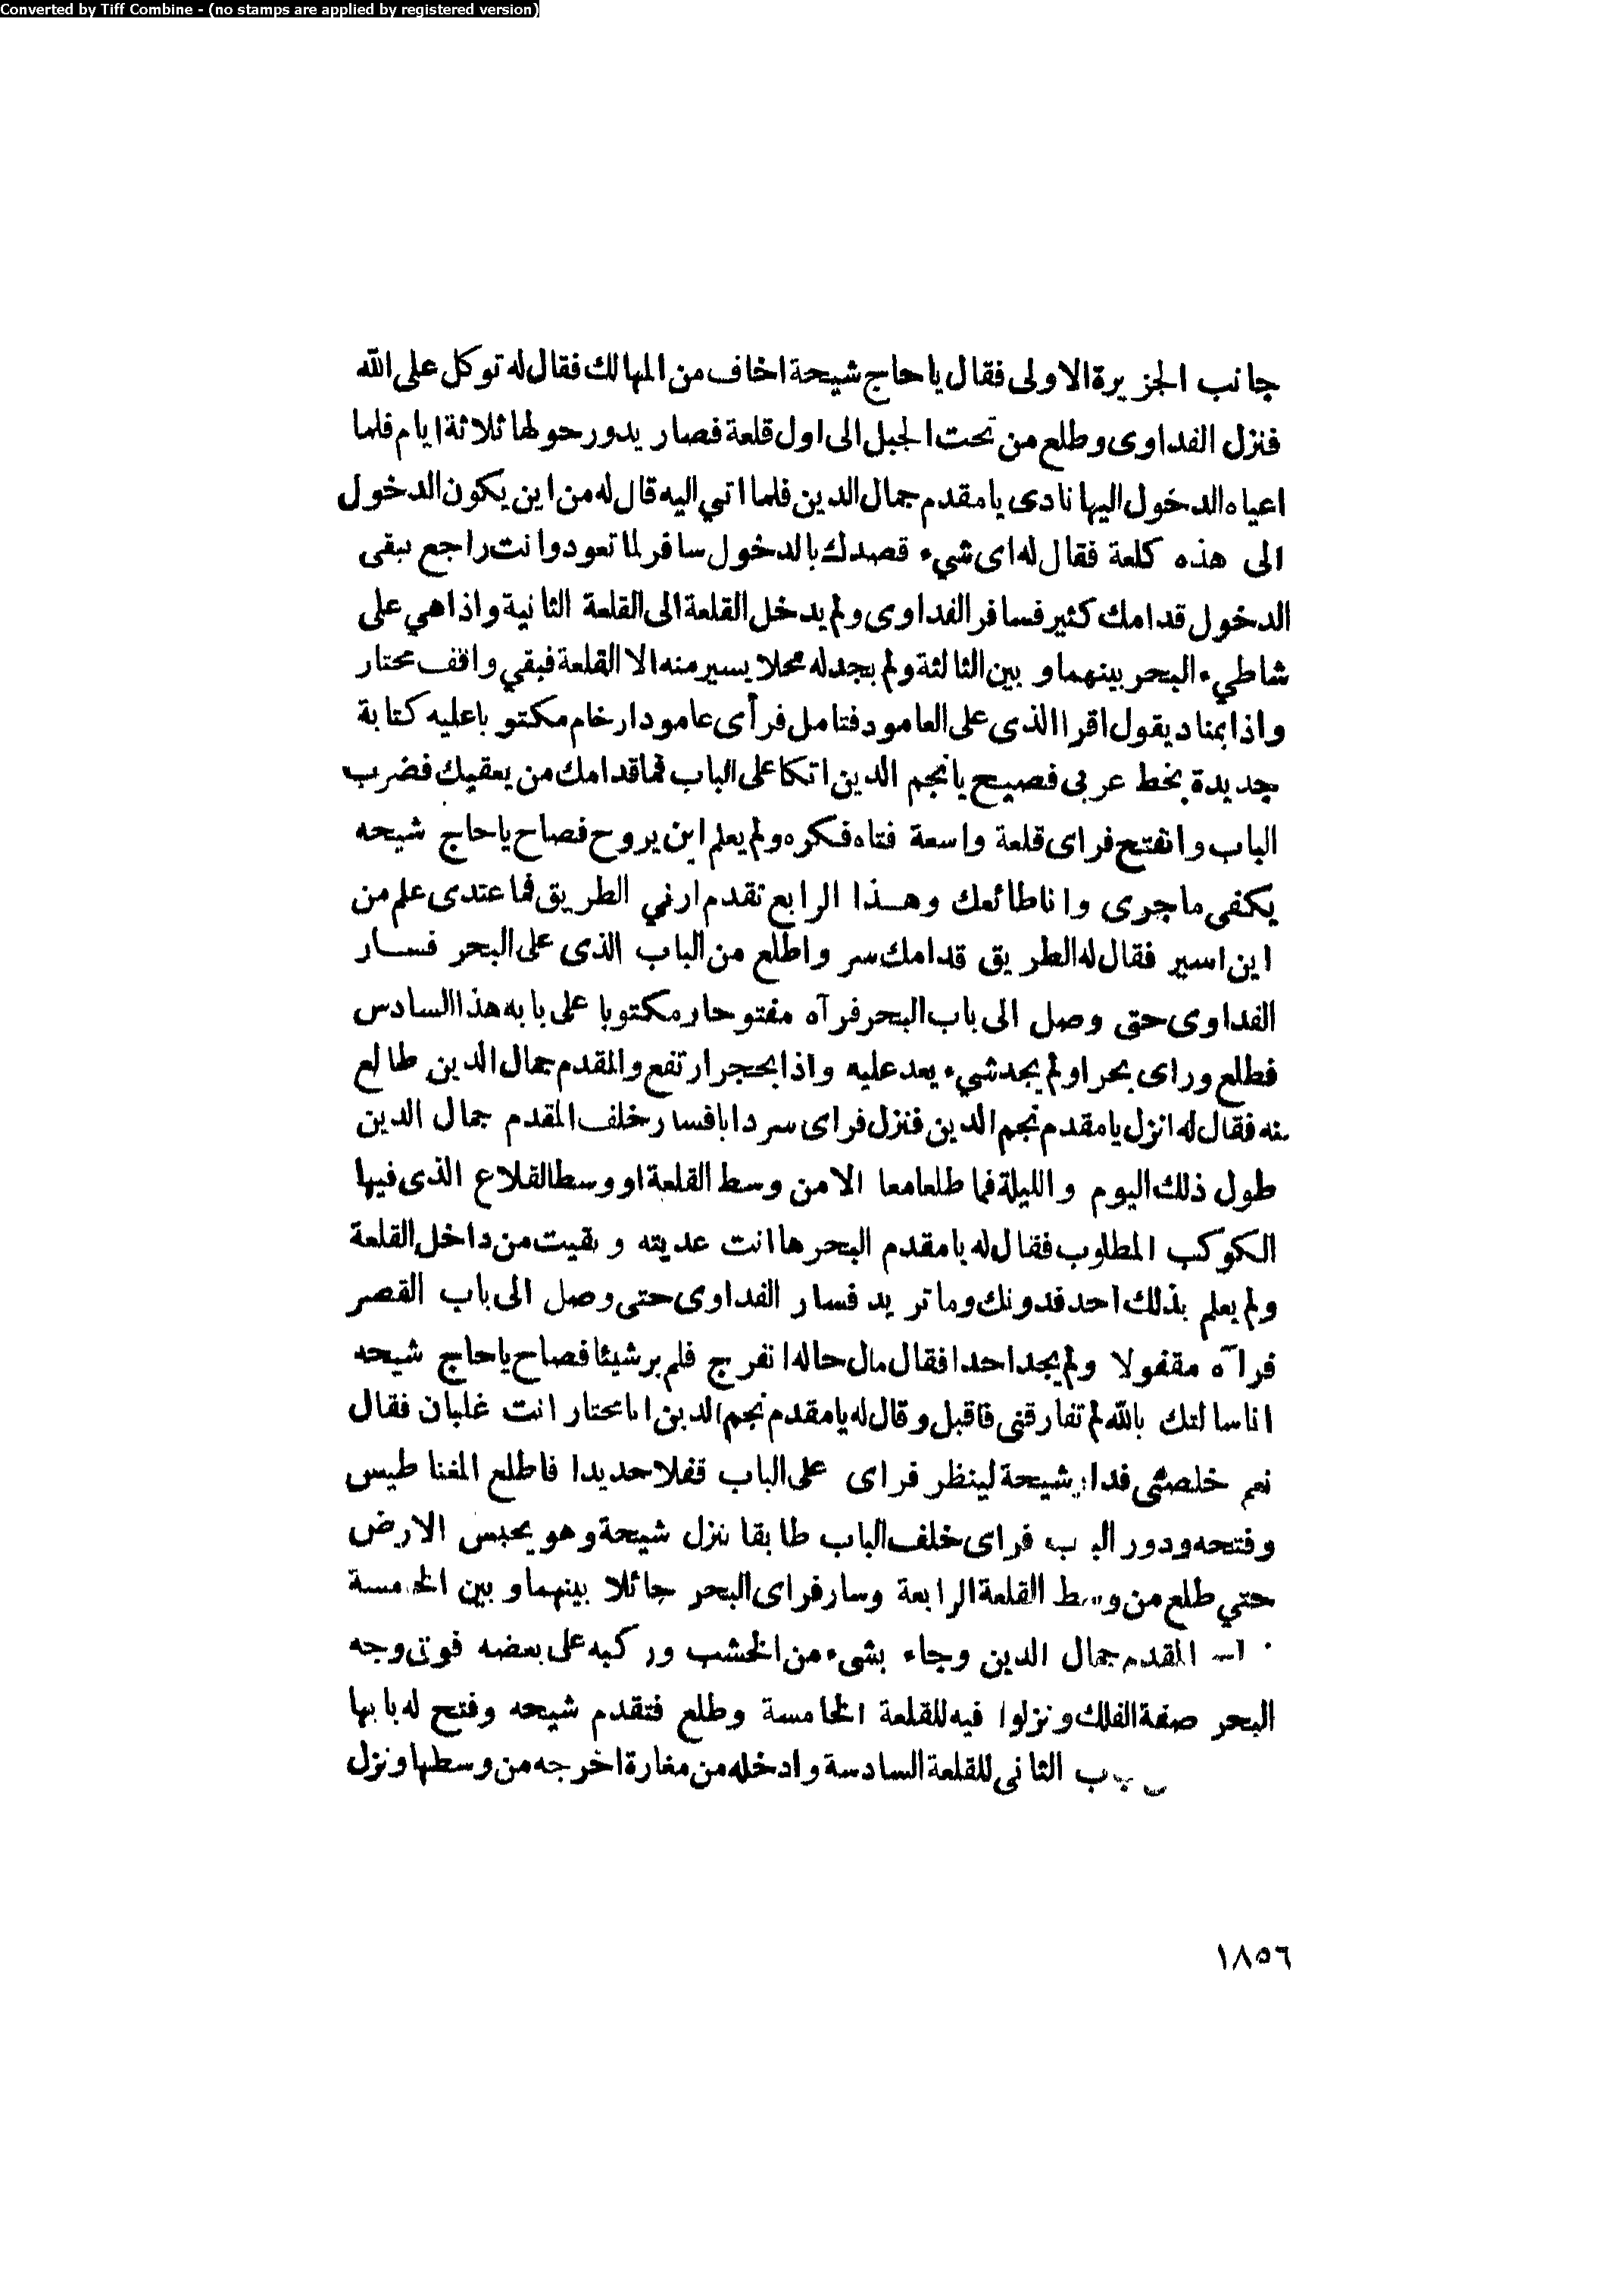 Converted by Tiff Combine - (no stamps are applied by registered version)
جانب الجزيرة الاولى فقال يا حاج شيحة اخاف من المهالك فقال له توكل على الله
فنزل الفداوى وطلع من تحت الجبل الى اول قلعة فصار يدور حولها ثلاثة ايام فلما
اعياه الدخول اليها نادى يا مقدم جمال الدين فلما اتي اليه قال له من اين يكون الدخول
الى هذه كلعة فقال له اى شيء قصدك بالدخول سافر لما تعود وانت راجع يبقى
الدخول قدامك كثير فسافر الفداوى ولم يدخل القلعة الى القلعة الثانية واذا هي على
شاطيء البحر بينهما و بين الثالثة ولم يجد له محلا يسير منه الا القلعة فبقي واقف محتار
واذا بمناد يقول اقرا الذى على العامود فتامل فرأى عامودا رخام مكتو با عليه كتابة
جديدة بخط عربى فصيح يا نجم الدين اتكا على الباب فما قدامك من يعقيك فضرب
الباب وانفتح فراى قلعة واسعة فتاه فكره ولم يعلم اين يروح فصاح يا حاج شيحه
يكفى ما جرى وانا طائعك وهذا الرابع تقدم ارني الطريق فما عتدى علم من
اين اسير فقال له الطريق قدامك سر واطلع من الباب الذى على البحر فسار
الفداوى حتى وصل الى باب البحر فرآه مفتوحا ومكتوبا على بابه هذا السادس
فطلع وراى بحرا ولم يجد شيء يعد عليه واذا بحجر ارتفع والمقدم جمال الدين طالع
منه فقال له انزل يا مقدم نجم الدين فنزل فراى سردابا فسار خلف المقدم جمال الدين
طول ذلك اليوم والليلة فما طلعا معا الا من وسط القلعة او وسط القلاع الذى فيها
الكوكب المطلوب فقال له يا مقدم البحر ها انت عديته و بقيت من داخل القلعة
ولم يعلم بذلك احد فدونك وما تريد فسار الفداوى حتى وصل الى باب القصر
فرآه مقفولا ولم يجد احدا فقال مال حاله انفرج فلم ير شيئا فصاح يا حاج شيحه
انا سالتك بالله لم تفارقنى فاقبل وقال له يا مقدم نجم الدين انا محتار انت غلبان فقال
نعم خلصنى فدار شيحة لينظر فراى على الباب قفلا حديدا فاطلع المغناطيس
وفتحه ودور الباب فراى خلف الباب طابقا نزل شيحة وهو يحبس الارض
حتي طلع من وسط القلعة الرابعة وسار فراى البحر جائلا بينهما و بين الخامسة
المقدم جمال الدين وجاء بشيء من الخشب وركبه على بعضه فوق وجه
البحر صفة الفلك ونزلوا فيه للقلعة الخامسة وطلع فتقدم شيحه وفتح له بابها
الثانى للقلعة السادسة وادخله من مغارة اخرجه من وسطها ونزل
١٨٥٦